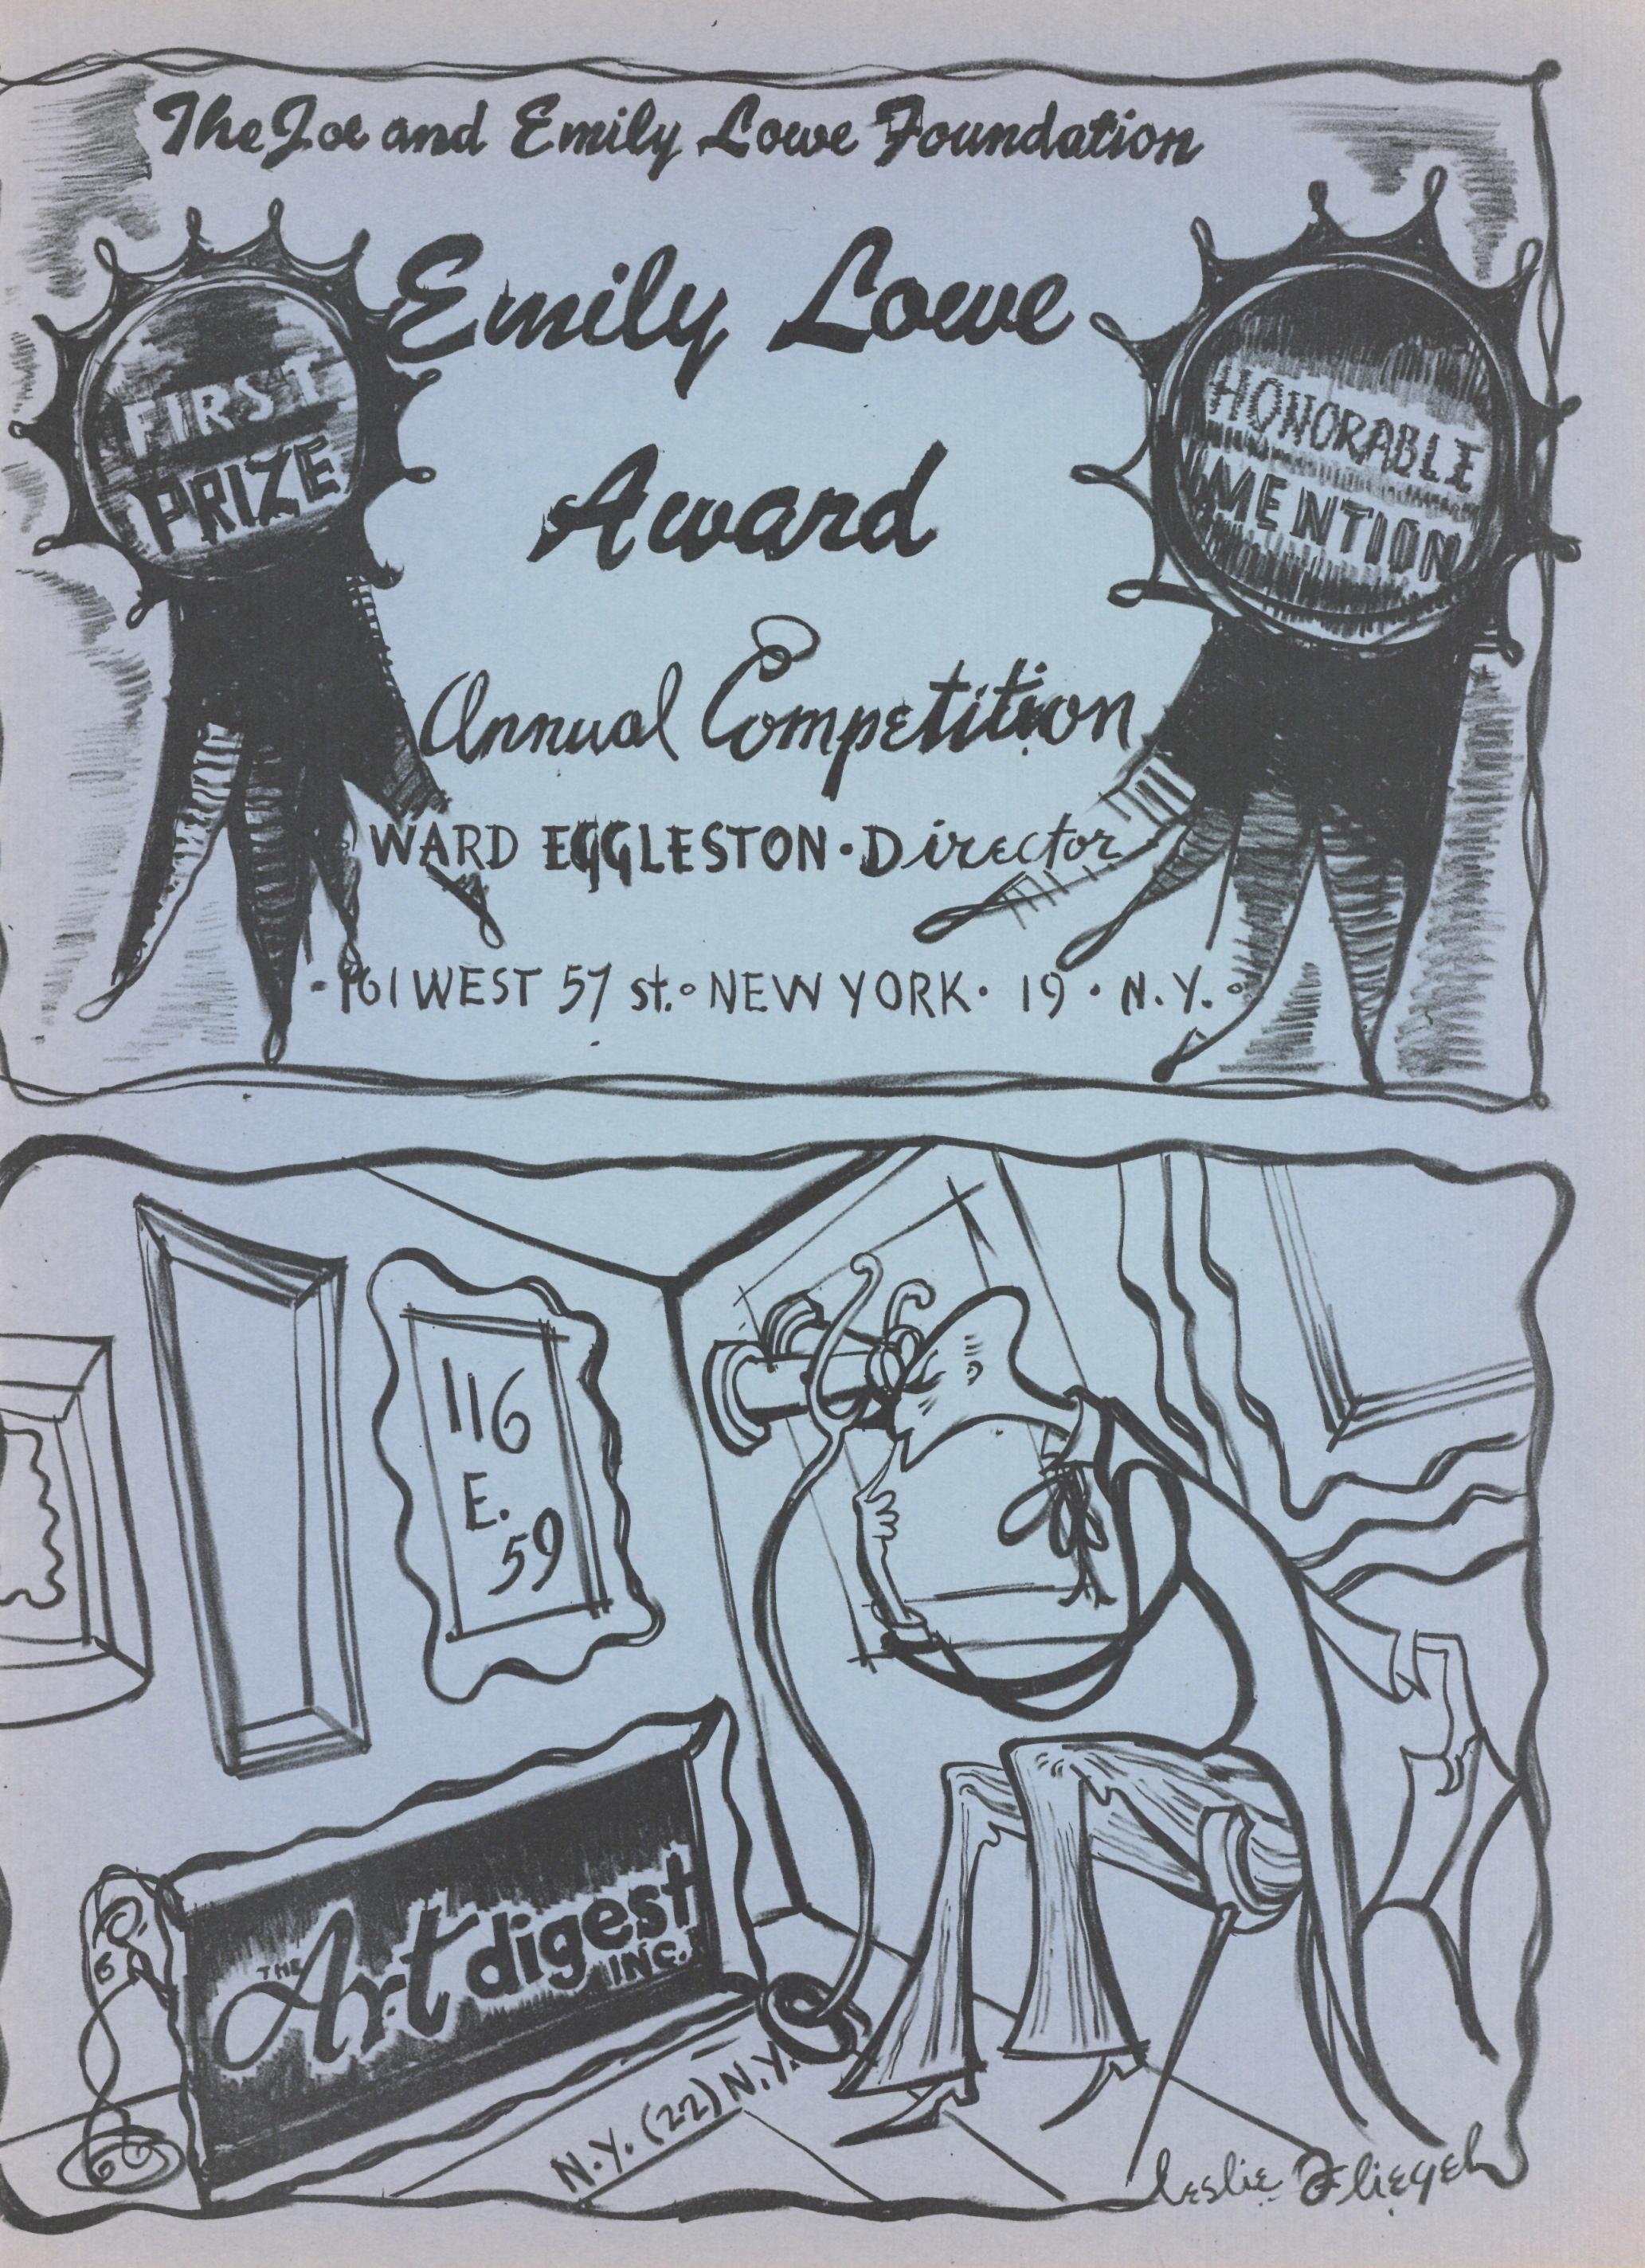 The Joe and Emily Lowe Foundation
Emily Lowe
Award
Annual Competition
WARD EGGLESTON · Director
· 161 WEST 57 st. · NEW YORK · 19 · N.Y. ·
FIRST
PRIZE
HONORABLE
MENTION
116
E.
59
THE Art digest
INC.
N.Y. (22) N.Y.
Leslie Fliegel